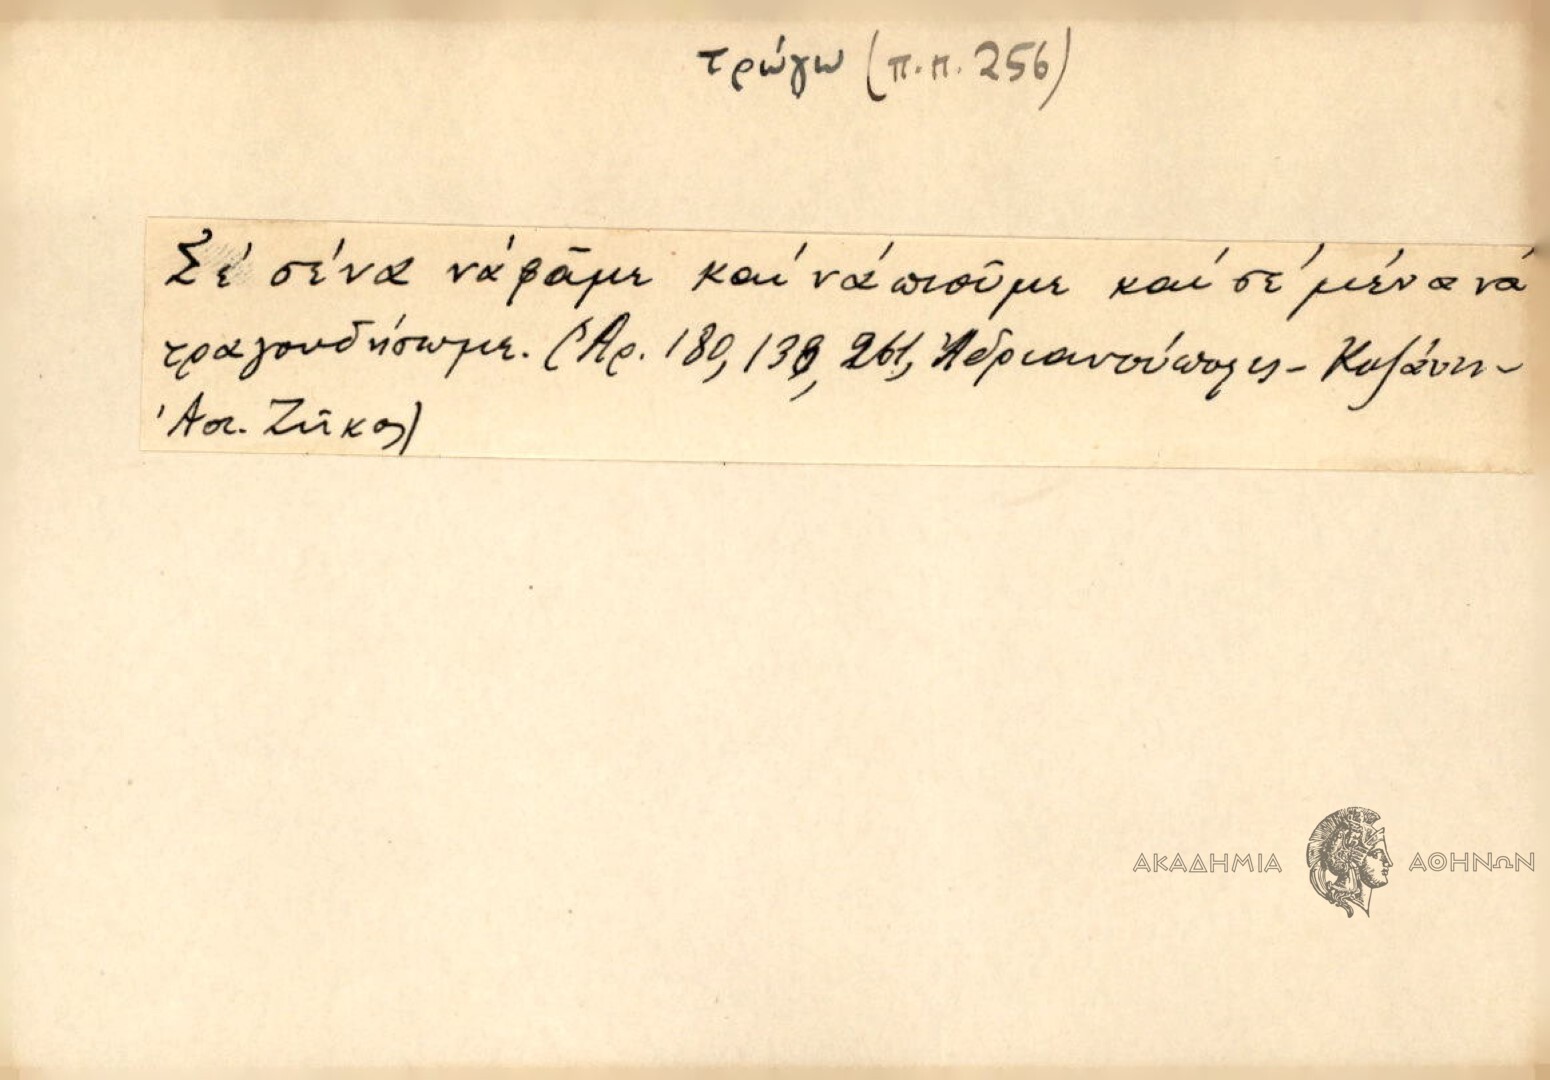 τρώγω (π.π. 256)
Σέ σένα νά φᾶμε καί νά πιοῦμε καί σέ μένα νά
τραγουδήσωμε. (Ἀρ. 180, 138, 261, Ἀδριανούπολις - Κοζάνη -
Ἀπ. Ζῆκος)
ΑΚΑΔΗΜΙΑ ΑΘΗΝΩΝ